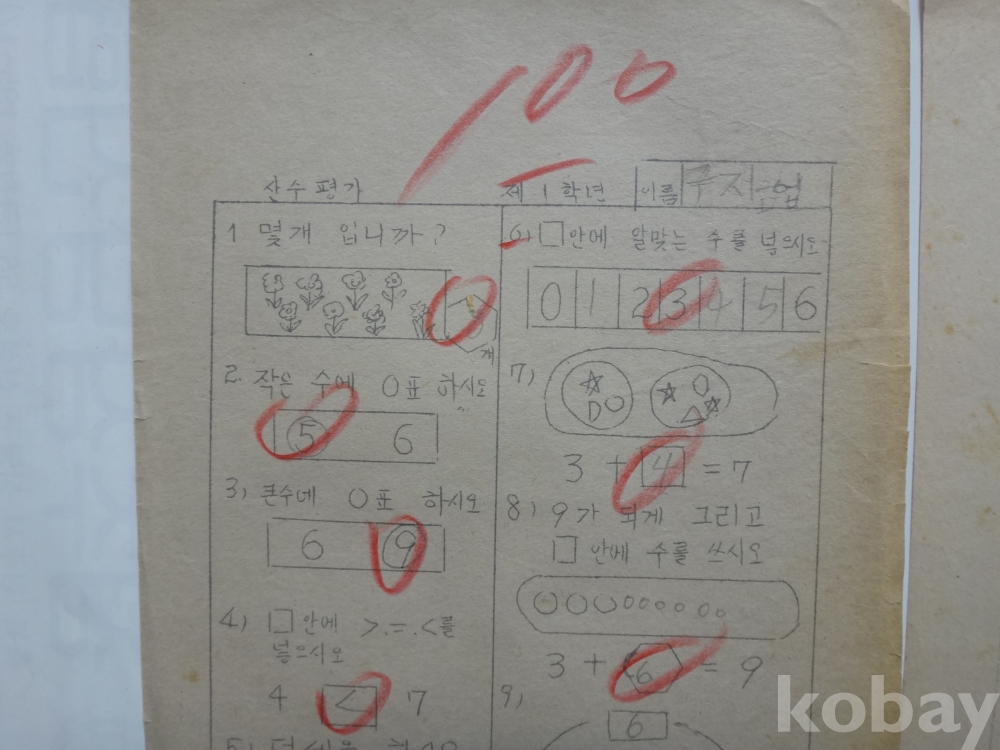 100
산수평가 제 1 학년 이름
1 몇개 입니까?
개
2. 작은 수에 O표 하시오
5 6
3) 큰수에 O표 하시오
6 9
4) □안에 >.=.<를
넣으시오
4 < 7
6) □안에 알맞는 수를 넣으시오
0 1 2 3 4 5 6
7)
3 + 4 = 7
8) 9가 되게 그리고
□ 안에 수를 쓰시오
3 + 6 = 9
9)
6
kobay